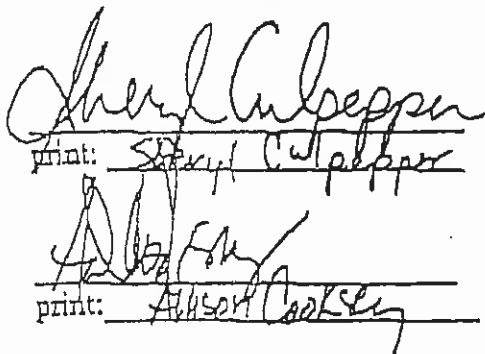 Sheryl Culpepper
print: Sheryl Culpepper
print: Allison Cooksey